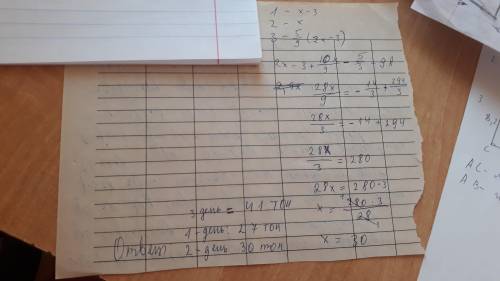 1 - x-3
2 - x
3 - 5/9 (2x-3)
2x - 3 + 10/9 - 5/3 = 98
28x/9 = - 14/3 + 294/3
28x/3 = - 14 + 294
28x/3 = 280
28x = 280·3
x = 280·3/28
x = 30
3 день = 41 тон
1 - день: 27 тон
Ответ 2 - день 30 тон